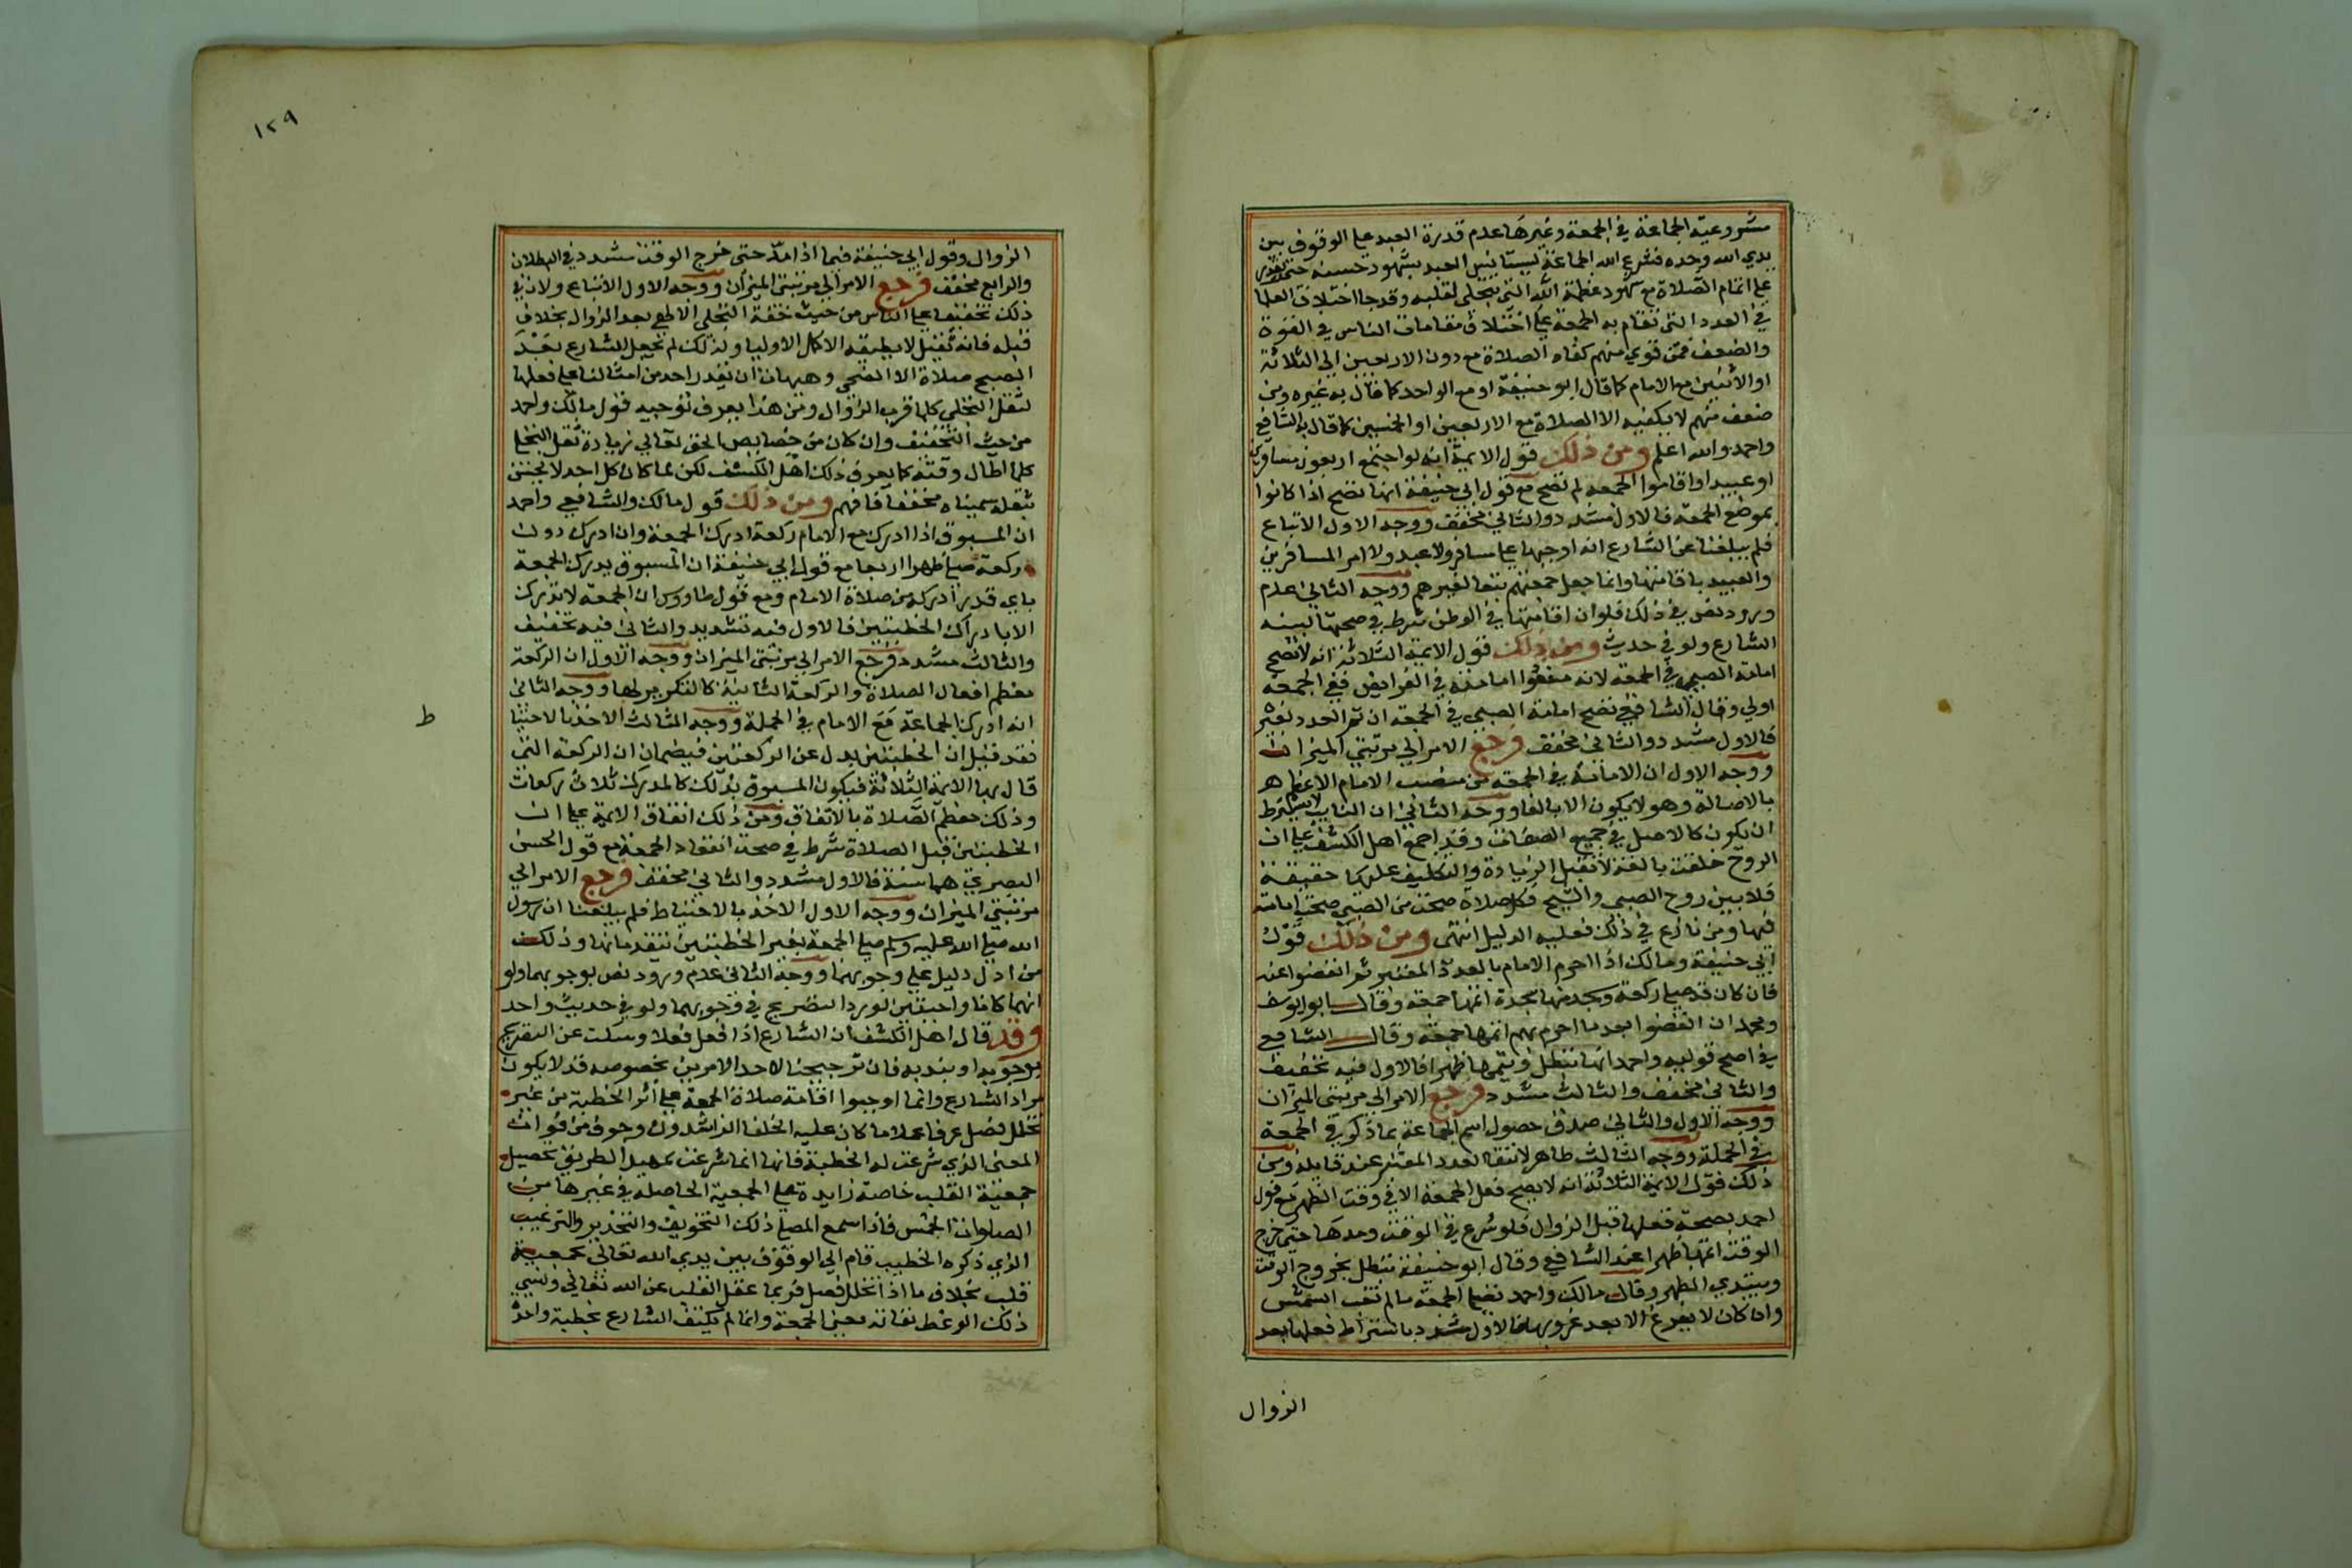 مشروعية الجماعة في الجمعة وغيرها عدم قدرة العبد على الوقوف بين
يدي الله وحده فشرع الله الجماعة ليستانس العبد بشهود جنسه حتى يقدر
على اتمام الصلاة مع شهود عظمة الله التي تتجلى لقلبه وقد جا اختلاف العلما
في العدد التي تقام به الجمعة على اختلاف مقامات الناس في القوة
والضعف فمن قوي منهم كفاه الصلاة مع دون الاربعين الى الثلاثة
او الاثنين مع الامام كما قال ابو حنيفة او مع الواحد كما قال به غيره ومن
ضعف منهم لا يكفيه الا الصلاة مع الاربعين او الخمسين كما قال به الشافعي
واحمد والله اعلم ومن ذلك قول الايمة انه لو اجتمع اربعون مسافرين
او عبيد او اقاموا الجمعه لم تصح مع قول ابي حنيفة انها تصح اذا كانوا
بموضع الجمعة فالاول مشدد والثاني مخفف ووجه الاول الاتباع
فلم يبلغنا عن الشارع انه اوجبها على مسافر ولا عبد ولا امر المسافرين
والعبيد باقامتها وانما جعل جمعتهم تبعا لغيرهم ووجه الثاني عدم
ورود نص في ذلك فلو ان اقامتها في الوطن شرط في صحتها لبينه
الشارع ولو في حديث ومن ذلك قول الايمة الثلاثة انه لا تصح
امامة الصبي في الجمعه لانه منعوا امامته في الفرايض ففي الجمعة
اولى وقال الشافعي تصح امامة الصبي في الجمعة ان تم العدد بغيره
فالاول مشدد والثاني مخفف فرجع الامر الى مرتبتي الميزان
ووجه الاول ان الامامة في الجمعه من منصب الامام الاعظم
بالاصالة وهو لا يكون الا بالغا ووجه الثاني ان النايب لا يشترط
ان يكون كالاصل في جميع الصفات وقد اجمع اهل الكشف على ان
الروح خلقت بالغة لا تقبل الزيادة والتكليف عليها حقيقة
فلا بين روح الصبي والشيخ فكل صلاة صحت من الصبي صحت امامته
فيها ومن نازع في ذلك فعليه الدليل انتهى ومن ذلك قول
ابي حنيفة ومالك اذا احرم الامام بالعدد المعتبر ثم انفضوا عنه
فان كان قد صلى ركعة وسجد منها سجدة اتمها جمعة وقال ابو يوسف
ومحمد ان انفضوا بعد ما احرم بهم اتمها جمعة وقال الشافعي
في اصح قوليه واحمد انها تبطل ويتمها ظهرا فالاول فيه تخفيف
والثاني مخفف والثالث مشدد فرجع الامر الى مرتبتي الميزان
ووجه الاول والثاني صدق حصول اسم الجماعة بما ذكر في الجمعة
في الجملة ووجه الثالث ظاهر لانتفا العدد المعتبر عند قايله ومن
ذلك قول الايمة الثلاثة انه لا يصح فعل الجمعة الا في وقت الظهر مع قول
احمد بصحة فعلها قبل الزوال فلو شرع في الوقت ومدها حتى خرج
الوقت اتمها ظهرا عند الشافعي وقال ابو حنيفة تبطل بخروج الوقت
ويبتدي الظهر وقال مالك واحمد تصلى الجمعة ما لم تغب الشمس
وان كان لا يفرغ الا بعد غروبها فالاول مشدد باشتراط فعلها بعد
الزوال
١٢٩
الزوال وقول ابي حنيفة فيما اذا مد حتى خرج الوقت مشدد في البطلان
والرابع مخفف فرجع الامر الى مرتبتي الميزان ووجه الاول الاتباع ولان في
ذلك تخفيفا على الناس من حيث خفة التجلي الالهي بعد الزوال بخلاف
قبله فانه ثقيل لا يطيقه الا كل الاوليا ولذلك لم يجعل الشارع بعد
الصبح صلاة الا الضحى وهيهات ان يقدر احد من امثالنا على فعلها
لثقل التجلي كلما قرب الزوال ومن هذا يعرف توجيه قول مالك واحمد
من حيث التخفيف وان كان من خصايص الحق تعالى زيادة ثقل التجلي
كلما طال وقته كما يعرف ذلك اهل الكشف لكن لما كان كل احد لا يحس
بثقله سميناه مخففا فافهم ومن ذلك قول مالك والشافعي واحمد
ان المسبوق اذا ادرك مع الامام ركعة ادرك الجمعة وان ادرك دون
ركعة صلى ظهرا اربعا مع قول ابي حنيفة ان المسبوق يدرك الجمعة
باي قدر ادركه من صلاة الامام ومع قول طاووس ان الجمعة لا تدرك
الا بادراك الخطبتين فالاول فيه تشديد والثاني فيه تخفيف
والثالث مشدد فرجع الامر الى مرتبتي الميزان ووجه الاول ان الركعة
معظم افعال الصلاة والركعة الثانية كالتكرير لها ووجه الثاني
انه ادرك الجماعة مع الامام في الجملة ووجه الثالث الاخذ بالاحتيا
ط
فقد قيل ان الخطبتين بدل عن الركعتين فيضمان ان الركعة التي
قال بها الايمة الثلاثة فيكون المسبوق بذلك كالمدرك ثلاث ركعات
وذلك معظم الصلاة بالاتفاق ومن ذلك اتفاق الايمة على ان
الخطبتين قبل الصلاة شرط في صحة انعقاد الجمعة مع قول الحسن
البصري هما سنة فالاول مشدد والثاني مخفف فرجع الامر الى
مرتبتي الميزان ووجه الاول الاخذ بالاحتياط فلم يبلغنا ان رسول
الله صلى الله عليه وسلم صلى الجمعة بغير الخطبتين يتقدمانها وذلك
من ادل دليل على وجوبهما ووجه الثاني عدم ورود نص بوجوبهما ولو
انهما كانا واجبتين لورد التصريح في وجوبهما ولو في حديث واحد
وقد قال اهل الكشف ان الشارع اذا فعل فعلا وسكت عن التصريح
بوجوبه او بندبه فان ترجيحنا لاحد الامرين بخصوصه قد لا يكون
مراد الشارع وانما اوجبوا اقامة صلاة الجمعة على اثر الخطبة من غير
تخلل فصل عرفا عملا بما كان عليه الخلفا الراشدون وخوفا من فوات
المعنى الذي شرعت له الخطبة فانها انما شرعت تمهيدا لطريق تحصيل
جمعية القلب خاصة زايدة على الجمعية الحاصلة في غيرها من
الصلوات الخمس فاذا سمع المصلي ذلك التخويف والتحذير والترغيب
الذي ذكره الخطيب قام الى الوقوف بين يدي الله تعالى بجمعية
قلب بخلاف ما اذا تخلل فصل فربما غفل القلب عن الله تعالى ونسي
ذلك الوعظ ففاته معنى الجمعة وانما لم يكتف الشارع بخطبة واحدة